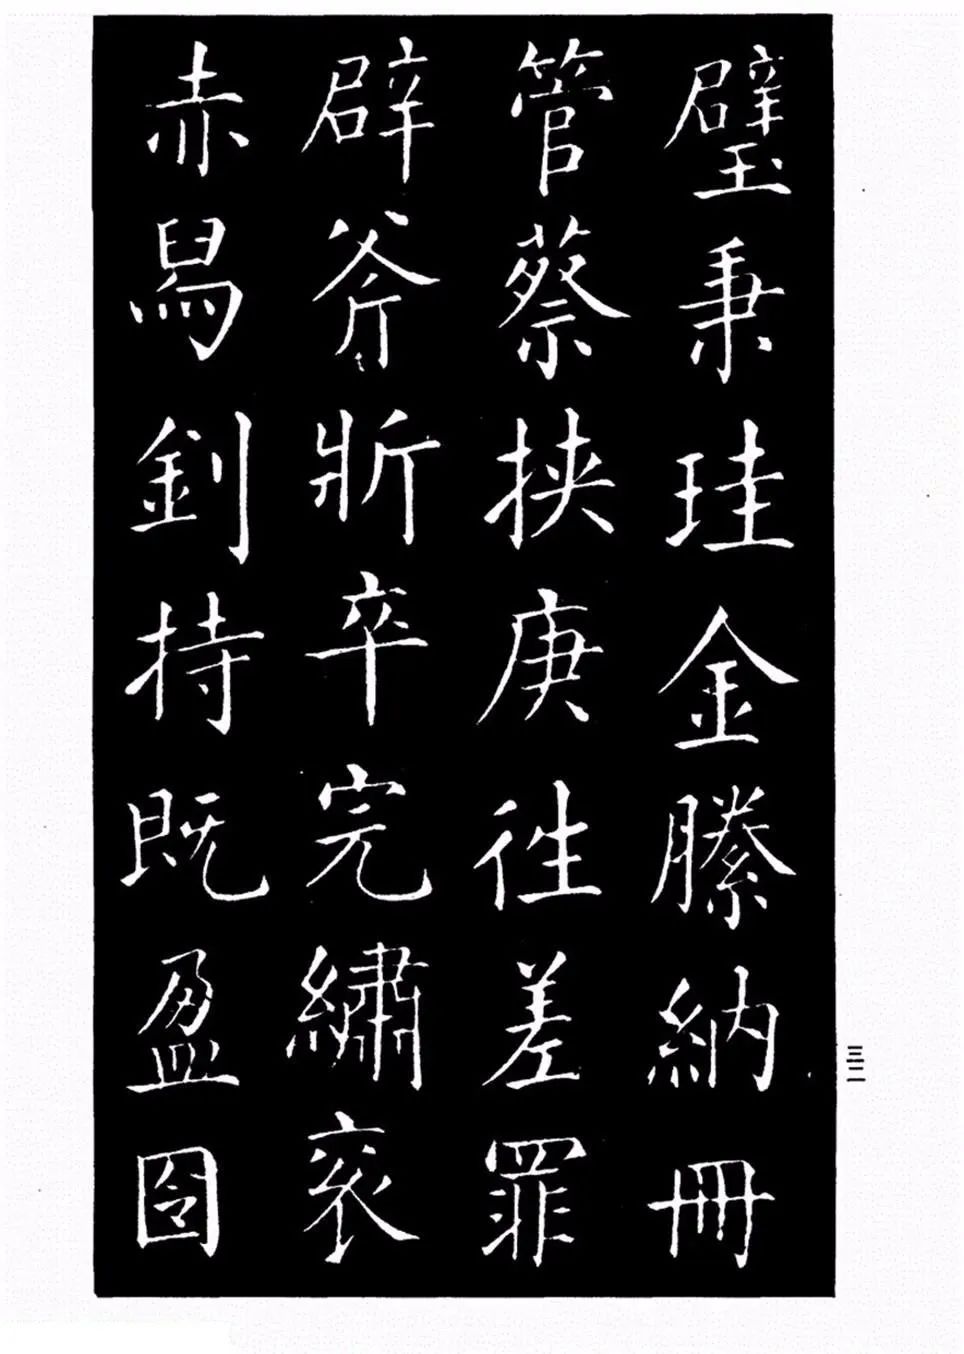 璧秉珪金縢納冊
管蔡挾庚往差罪
辟斧斨卒完繡衮
赤舄釗持既盈囹
三二